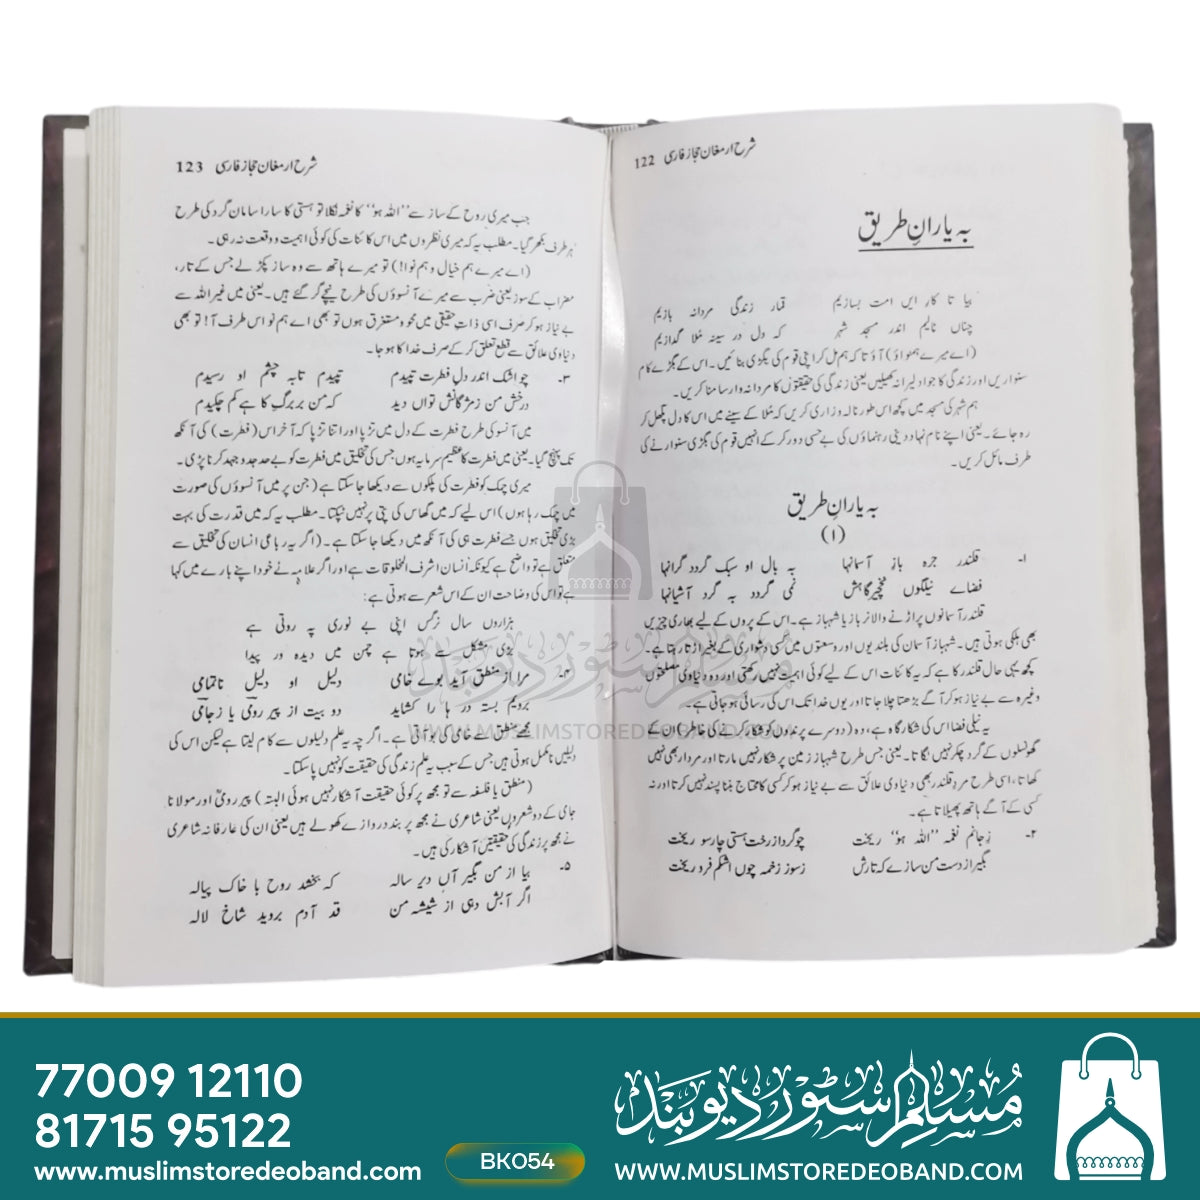 شرح ارمغان حجاز فارسی 122
بہ یارانِ طریق
بیا تا کار ایں امت بسازیم قمار زندگی مردانہ بازیم
چناں نالیم اندر مسجد شہر کہ دل در سینہ مُلا گدازیم
(اے میرے ہمنواؤ) آؤ تاکہ ہم مل کر اپنی قوم کی بگڑی بنائیں۔ اس کے بگڑے کام
سنواریں اور زندگی کا جوا دلیرانہ کھیلیں یعنی زندگی کی حقیقتوں کا مردانہ وار سامنا کریں۔
ہم شہر کی مسجد میں کچھ اس طور نالہ وزاری کریں کہ مُلا کے سینے میں اس کا دل پگھل کر
رہ جائے۔ یعنی اپنے نام نہاد دینی رہنماؤں کی بے حسی دور کر کے انہیں قوم کی بگڑی سنوارنے کی
طرف مائل کریں۔
بہ یارانِ طریق
(۱)
۱۔ قلندر جرہ باز آسمانہا بہ بال او سبک گردد گرانہا
فضاے نیلگوں نخچیر گاہش نمی گردد بہ گرد آشیانہا
قلندر آسمانوں پر اڑنے والا نر باز یا شہباز ہے۔ اس کے پروں کے لیے بھاری چیزیں
بھی ہلکی ہوتی ہیں۔ شہباز آسمان کی بلندیوں اور وسعتوں میں کسی دشواری کے بغیر اڑتا رہتا ہے۔
کچھ یہی حال قلندر کا ہے کہ یہ کائنات اس کے لیے کوئی اہمیت نہیں رکھتی اور وہ دنیاوی مصلحتوں
وغیرہ سے بے نیاز ہو کر آگے بڑھتا چلا جاتا اور یوں خدا تک اس کی رسائی ہو جاتی ہے۔
یہ نیلی فضا اس کی شکار گاہ ہے، وہ (دوسرے پرندوں کو شکار کرنے کی خاطر) ان کے
گھونسلوں کے گرد چکر نہیں لگاتا۔ یعنی جس طرح شہباز زمین پر شکار نہیں مارتا اور مردار بھی نہیں
کھاتا، اسی طرح مرد قلندر بھی دنیاوی علائق سے بے نیاز ہو کر کسی کا محتاج بننا پسند نہیں کرتا اور نہ
کسی کے آگے ہاتھ پھیلاتا ہے۔
۲۔ زجانم نغمہ ''اللہ ہو'' ریخت چو گرد از رخت ہستی چار سو ریخت
بگیر از دست من سازے کہ تارش زسوز زخمہ چوں اشکم فرو ریخت
شرح ارمغان حجاز فارسی 123
جب میری روح کے ساز سے ''اللہ ہو'' کا نغمہ نکلا تو ہستی کا سارا سامان گرد کی طرح
ہر طرف بکھر گیا۔ مطلب یہ کہ میری نظروں میں اس کائنات کی کوئی اہمیت و وقعت نہ رہی۔
(اے میرے ہم خیال و ہم نوا!) تو میرے ہاتھ سے وہ ساز پکڑ لے جس کے تار،
مضراب کے سوز یعنی ضرب سے میرے آنسوؤں کی طرح نیچے گر گئے ہیں۔ یعنی میں غیر اللہ سے
بے نیاز ہو کر صرف اسی ذاتِ حقیقی میں محو و مستغرق ہوں تو بھی اے ہم نوا اس طرف آ! تو بھی
دنیاوی علائق سے قطع تعلق کر کے صرف خدا کا ہو جا۔
۳۔ چو اشک اندر دلِ فطرت تپیدم تپیدم تا بہ چشم او رسیدم
درخش من ز مژگانش تواں دید کہ من بر برگِ کا ہے کم چکیدم
میں آنسو کی طرح فطرت کے دل میں تڑپا اور اتنا تڑپا کہ آخر اس (فطرت) کی آنکھ
تک پہنچ گیا۔ یعنی میں فطرت کا عظیم سرمایہ ہوں جس کی تخلیق میں فطرت کو بے حد جدوجہد کرنا پڑی۔
میری چمک کو فطرت کی پلکوں سے دیکھا جا سکتا ہے (جن پر میں آنسوؤں کی صورت
میں چمک رہا ہوں) اس لیے کہ میں گھاس کی پتی پر نہیں ٹپکتا۔ مطلب یہ کہ میں قدرت کی بہت
بڑی تخلیق ہوں جسے فطرت ہی کی آنکھ میں دیکھا جا سکتا ہے۔ (اگر یہ رباعی انسان کی تخلیق سے
متعلق ہے تو واضح ہے کیونکہ انسان اشرف المخلوقات ہے اور اگر علامہ نے خود اپنے بارے میں کہا
ہے تو اس کی وضاحت ان کے اس شعر سے ہوتی ہے:
ہزاروں سال نرگس اپنی بے نوری پہ روتی ہے
بڑی مشکل سے ہوتا ہے چمن میں دیدہ ور پیدا
۴۔ مرا از منطق آید بوے خامی دلیل او دلیل ناتمامی
برویم بستہ در ہا را کشاید دو بیت از پیر رومی یا ز جامی
مجھے منطق سے خامی کی بو آتی ہے۔ اگرچہ یہ علم دلیلوں سے کام لیتا ہے لیکن اس کی
دلیلیں نامکمل ہوتی ہیں جس کے سبب یہ علم زندگی کی حقیقت کو نہیں پا سکتا۔
(منطق یا فلسفہ سے تو مجھ پر کوئی حقیقت آشکار نہیں ہوئی البتہ) پیر رومیؒ اور مولانا
جامی کے دو شعروں یعنی شاعری نے مجھ پر بند دروازے کھولے ہیں یعنی ان کی عارفانہ شاعری
نے مجھ پر زندگی کی حقیقتیں آشکار کی ہیں۔
۵۔ بیا از من بگیر آں دیر سالہ کہ بخشد روح با خاک پیالہ
اگر آبش دہی از شیشہ من قد آدم بروید شاخ لالہ
مسلم سٹور دیوبند
WWW.MUSLIMSTOREDEOBAND.COM
77009 12110
81715 95122
www.muslimstoredeoband.com
BK054
مسلم سٹور دیوبند
WWW.MUSLIMSTOREDEOBAND.COM